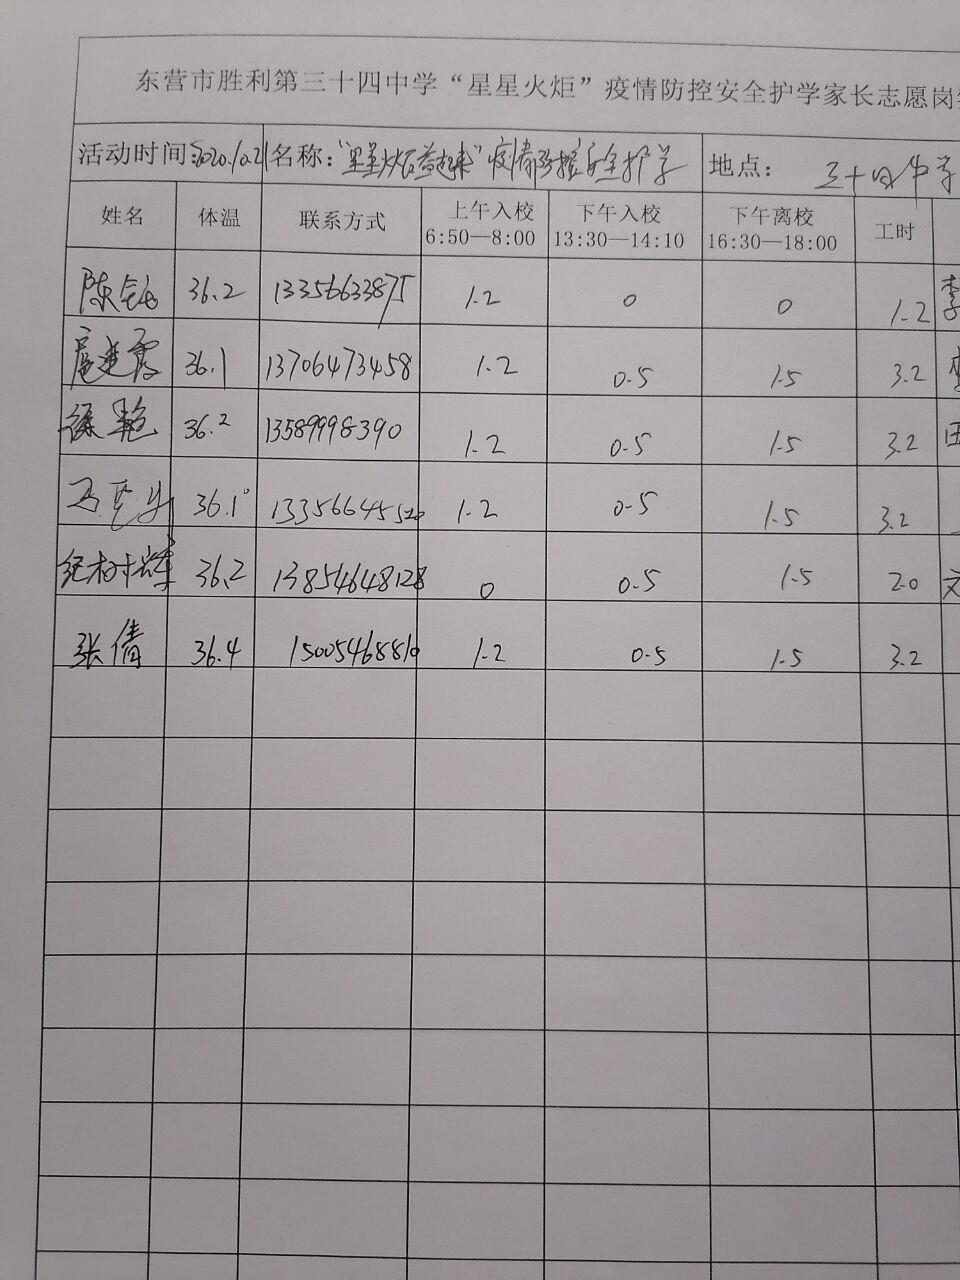 东营市胜利第三十四中学“星星火炬”疫情防控安全护学家长志愿岗
活动时间:2020.10.21 名称: “星星火炬益起来”疫情防控安全护学 地点: 三十四中学
姓名 体温 联系方式 上午入校 6:50—8:00 下午入校 13:30—14:10 下午离校 16:30—18:00 工时
陈 36.2 13356633875 1.2 0 0 1.2 李
霞 36.1 13706473458 1.2 0.5 1.5 3.2
徐艳 36.2 13589998390 1.2 0.5 1.5 3.2 田
36.1° 13356645520 1.2 0.5 1.5 3.2
纪树辉 36.2 13854648128 0 0.5 1.5 2.0
张倩 36.4 15005468810 1.2 0.5 1.5 3.2